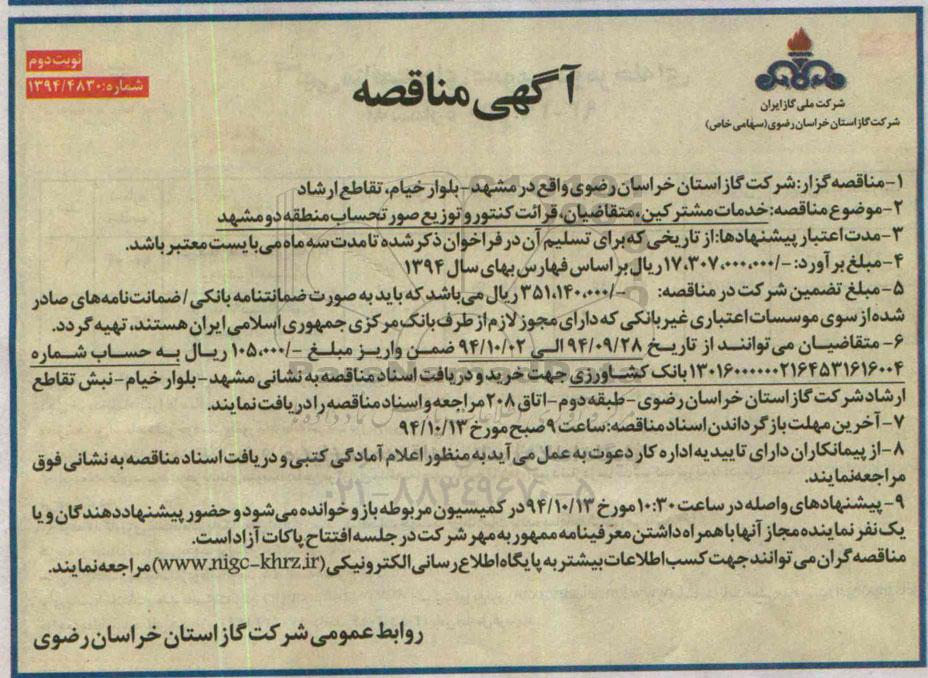 نوبت دوم
شماره: ۱۳۹۴/۴۸۳۰
آگهی مناقصه
شرکت ملی گاز ایران
شرکت گاز استان خراسان رضوی (سهامی خاص)
۱- مناقصه گزار: شرکت گاز استان خراسان رضوی واقع در مشهد - بلوار خیام، تقاطع ارشاد
۲- موضوع مناقصه: خدمات مشترکین، متقاضیان، قرائت کنتور و توزیع صورتحساب منطقه دو مشهد
۳- مدت اعتبار پیشنهادها: از تاریخی که برای تسلیم آن در فراخوان ذکر شده تا مدت سه ماه می بایست معتبر باشد.
۴- مبلغ برآورد: -/۱۷،۳۰۷،۰۰۰،۰۰۰ ریال بر اساس فهارس بهای سال ۱۳۹۴
۵- مبلغ تضمین شرکت در مناقصه: -/۳۵۱،۱۴۰،۰۰۰ ریال می باشد که باید به صورت ضمانتنامه بانکی / ضمانت نامه های صادر
شده از سوی موسسات اعتباری غیر بانکی که دارای مجوز لازم از طرف بانک مرکزی جمهوری اسلامی ایران هستند، تهیه گردد.
۶- متقاضیان می توانند از تاریخ ۹۴/۰۹/۲۸ الی ۹۴/۱۰/۰۲ ضمن واریز مبلغ -/۱۰۵،۰۰۰ ریال به حساب شماره
۱۳۰۱۶۰۰۰۰۰۰۲۱۶۴۵۳۱۶۱۶۰۰۴ بانک کشاورزی جهت خرید و دریافت اسناد مناقصه به نشانی مشهد - بلوار خیام - نبش تقاطع
ارشاد شرکت گاز استان خراسان رضوی - طبقه دوم - اتاق ۲۰۸ مراجعه و اسناد مناقصه را دریافت نمایند.
۷- آخرین مهلت بازگرداندن اسناد مناقصه: ساعت ۹ صبح مورخ ۹۴/۱۰/۱۳
۸- از پیمانکاران دارای تاییدیه اداره کار دعوت به عمل می آید به منظور اعلام آمادگی کتبی و دریافت اسناد مناقصه به نشانی فوق
مراجعه نمایند.
۹- پیشنهادهای واصله در ساعت ۱۰:۳۰ مورخ ۹۴/۱۰/۱۳ در کمیسیون مربوطه باز و خوانده می شود و حضور پیشنهاد دهندگان و یا
یک نفر نماینده مجاز آنها با همراه داشتن معرفینامه ممهور به مهر شرکت در جلسه افتتاح پاکات آزاد است.
مناقصه گران می توانند جهت کسب اطلاعات بیشتر به پایگاه اطلاع رسانی الکترونیکی (www.nigc-khrz.ir) مراجعه نمایند.
روابط عمومی شرکت گاز استان خراسان رضوی